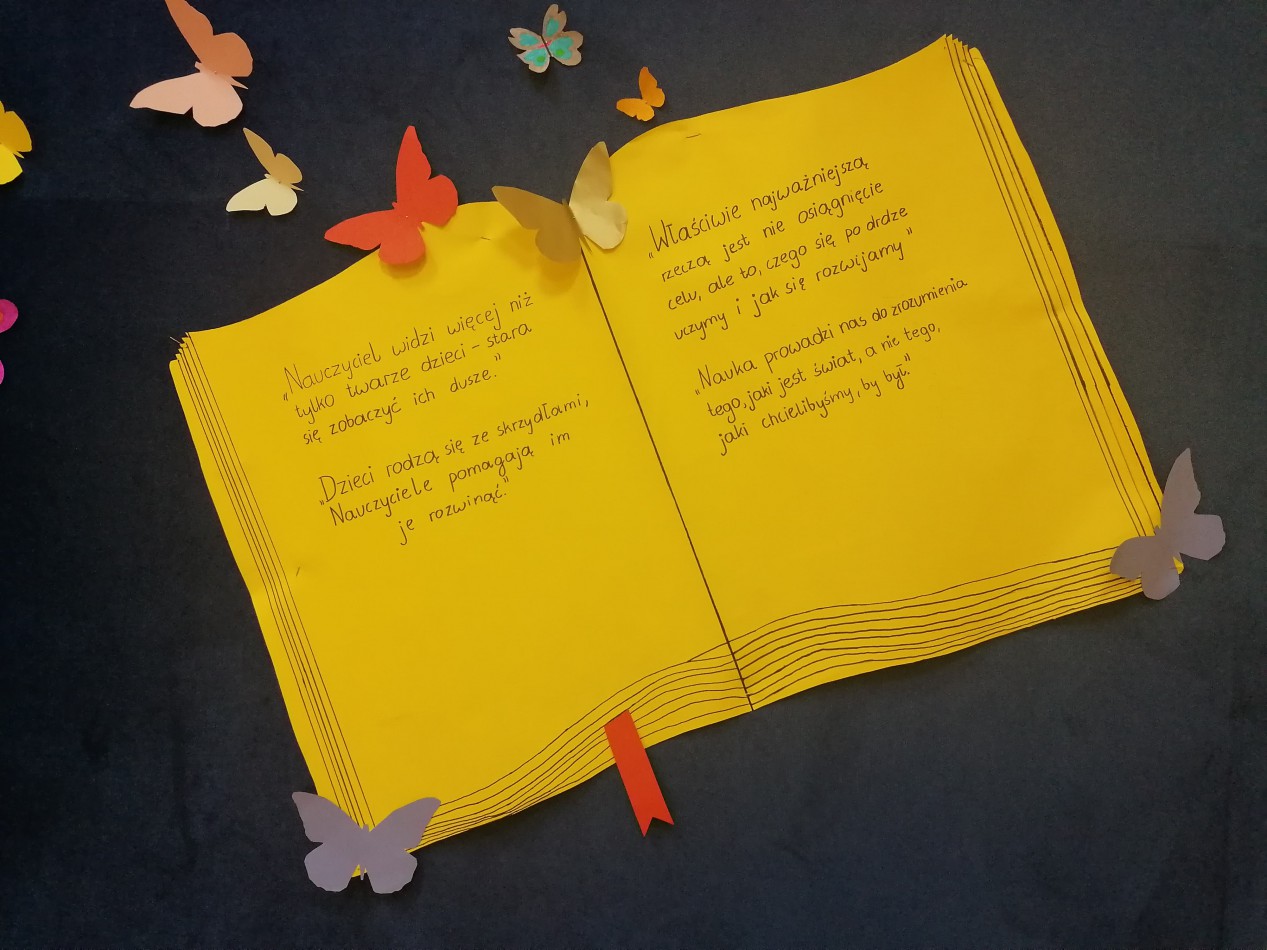 „Nauczyciel widzi więcej niż
tylko twarze dzieci - stara
się zobaczyć ich dusze.”
„Dzieci rodzą się ze skrzydłami,
Nauczyciele pomagają im
je rozwinąć.”
„Właściwie najważniejszą
rzeczą jest nie osiągnięcie
celu, ale to, czego się po drdze
uczymy i jak się rozwijamy”
„Nauka prowadzi nas do zrozumienia
tego, jaki jest świat, a nie tego,
jaki chcielibyśmy, by był.”